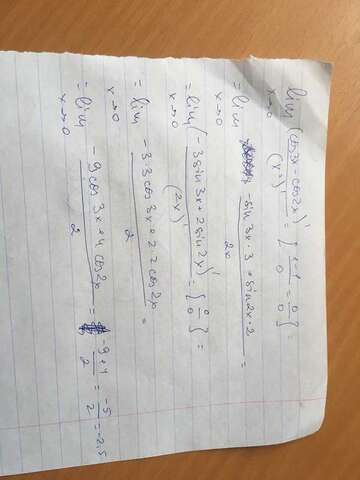 lim (cos3x - cos2x)' / (x²)' = [ (1-1)/0 = 0/0 ] =
x→0
= lim (-sin 3x · 3 + sin2x · 2) / 2x =
x→0
= lim (-3sin 3x + 2sin 2x)' / (2x)' = [ 0/0 ] =
x→0
= lim (-3·3 cos 3x + 2·2 cos2x) / 2 =
x→0
= lim (-9cos 3x + 4 cos2x) / 2 = (-9+4)/2 = -5/2 = -2,5
x→0